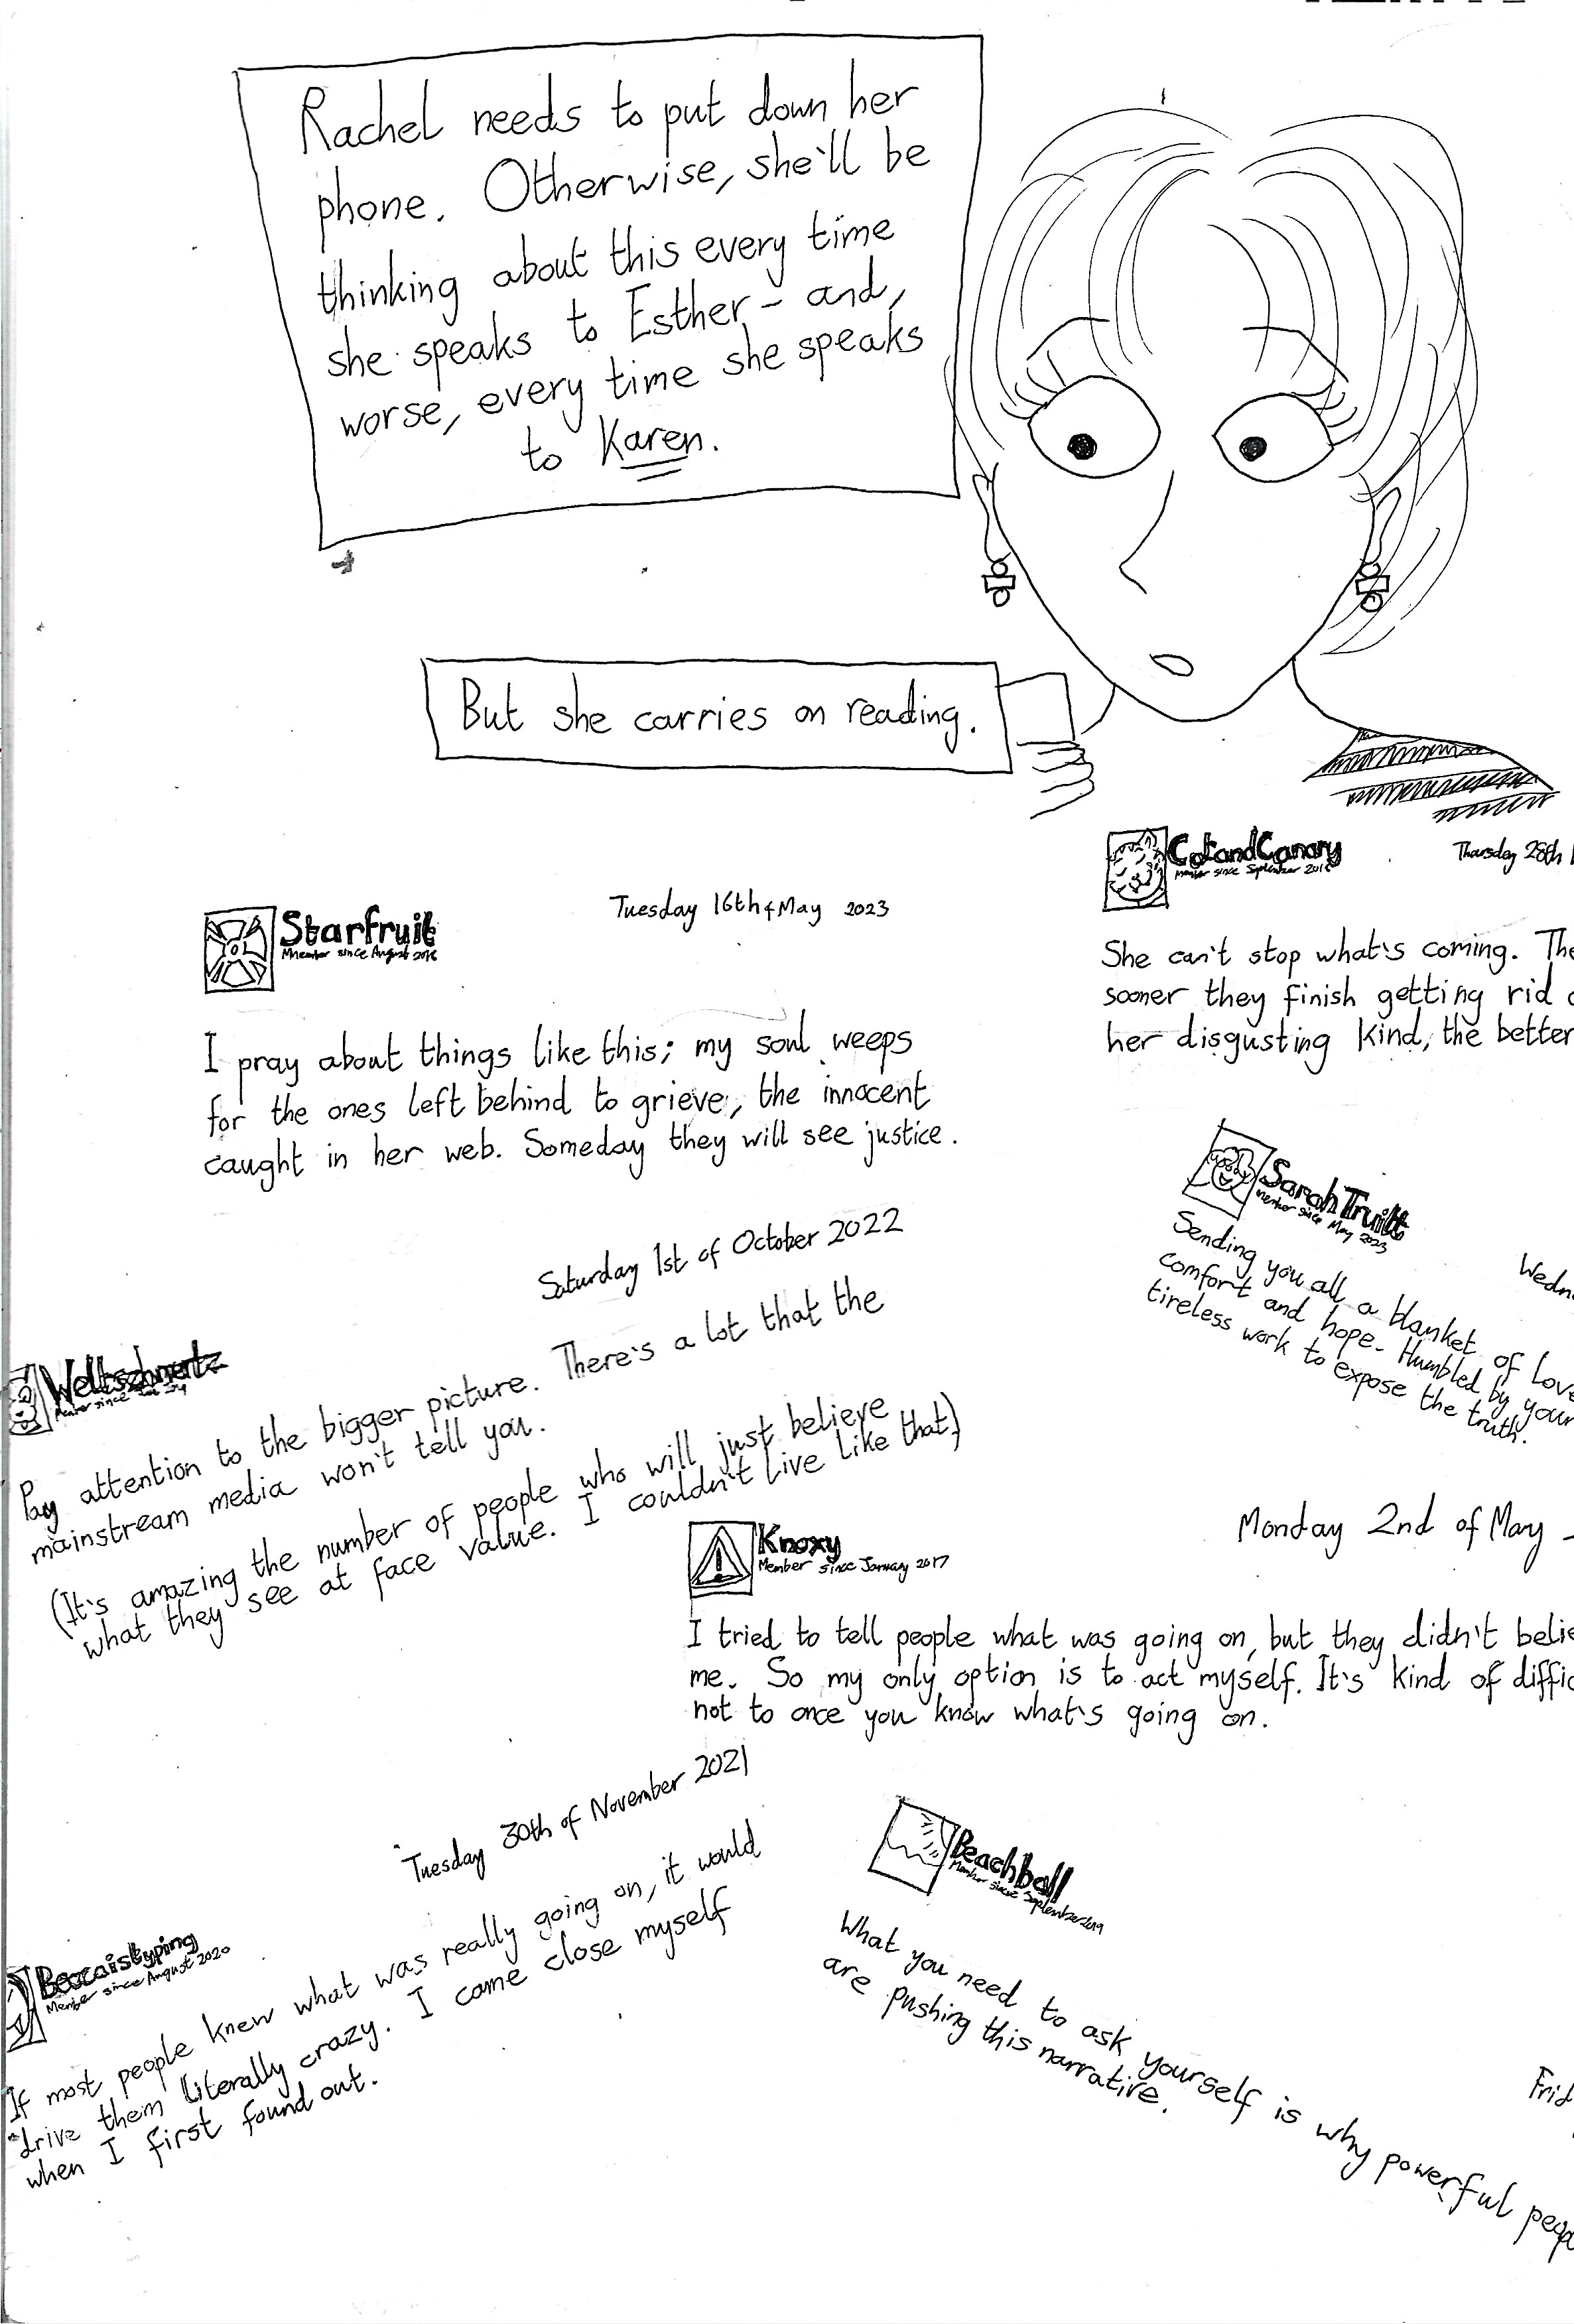 Rachel needs to put down her
phone. Otherwise, she'll be
thinking about this every time
she speaks to Esther - and,
worse, every time she speaks
to Karen.
But she carries on reading.
Starfruit
Member since August 2016
Tuesday 16th of May 2023
I pray about things like this; my soul weeps
for the ones left behind to grieve, the innocent
caught in her web. Someday they will see justice.
CatandCanary
Member since September
Thursday 28th
She can't stop what's coming. The
sooner they finish getting rid
her disgusting kind, the better
SarahTruitt
Member since May 2023
Wedn
Sending you all a blanket of love
comfort and hope. Humbled by your
tireless work to expose the truth.
Weltschmertz
Member since
Saturday 1st of October 2022
Pay attention to the bigger picture. There's a lot that the
mainstream media won't tell you.
(It's amazing the number of people who will just believe
what they see at face value. I couldn't live like that)
Knoxy
Member since January 2017
Monday 2nd of May
I tried to tell people what was going on, but they didn't belie
me. So my only option is to act myself. It's kind of diffic
not to once you know what's going on.
Beccaistyping
Member since August 2020
Tuesday 30th of November 2021
If most people knew what was really going on, it would
drive them literally crazy. I came close myself
when I first found out.
Beachball
Member since September 2019
Frid
What you need to ask yourself is why powerful peop
are pushing this narrative.